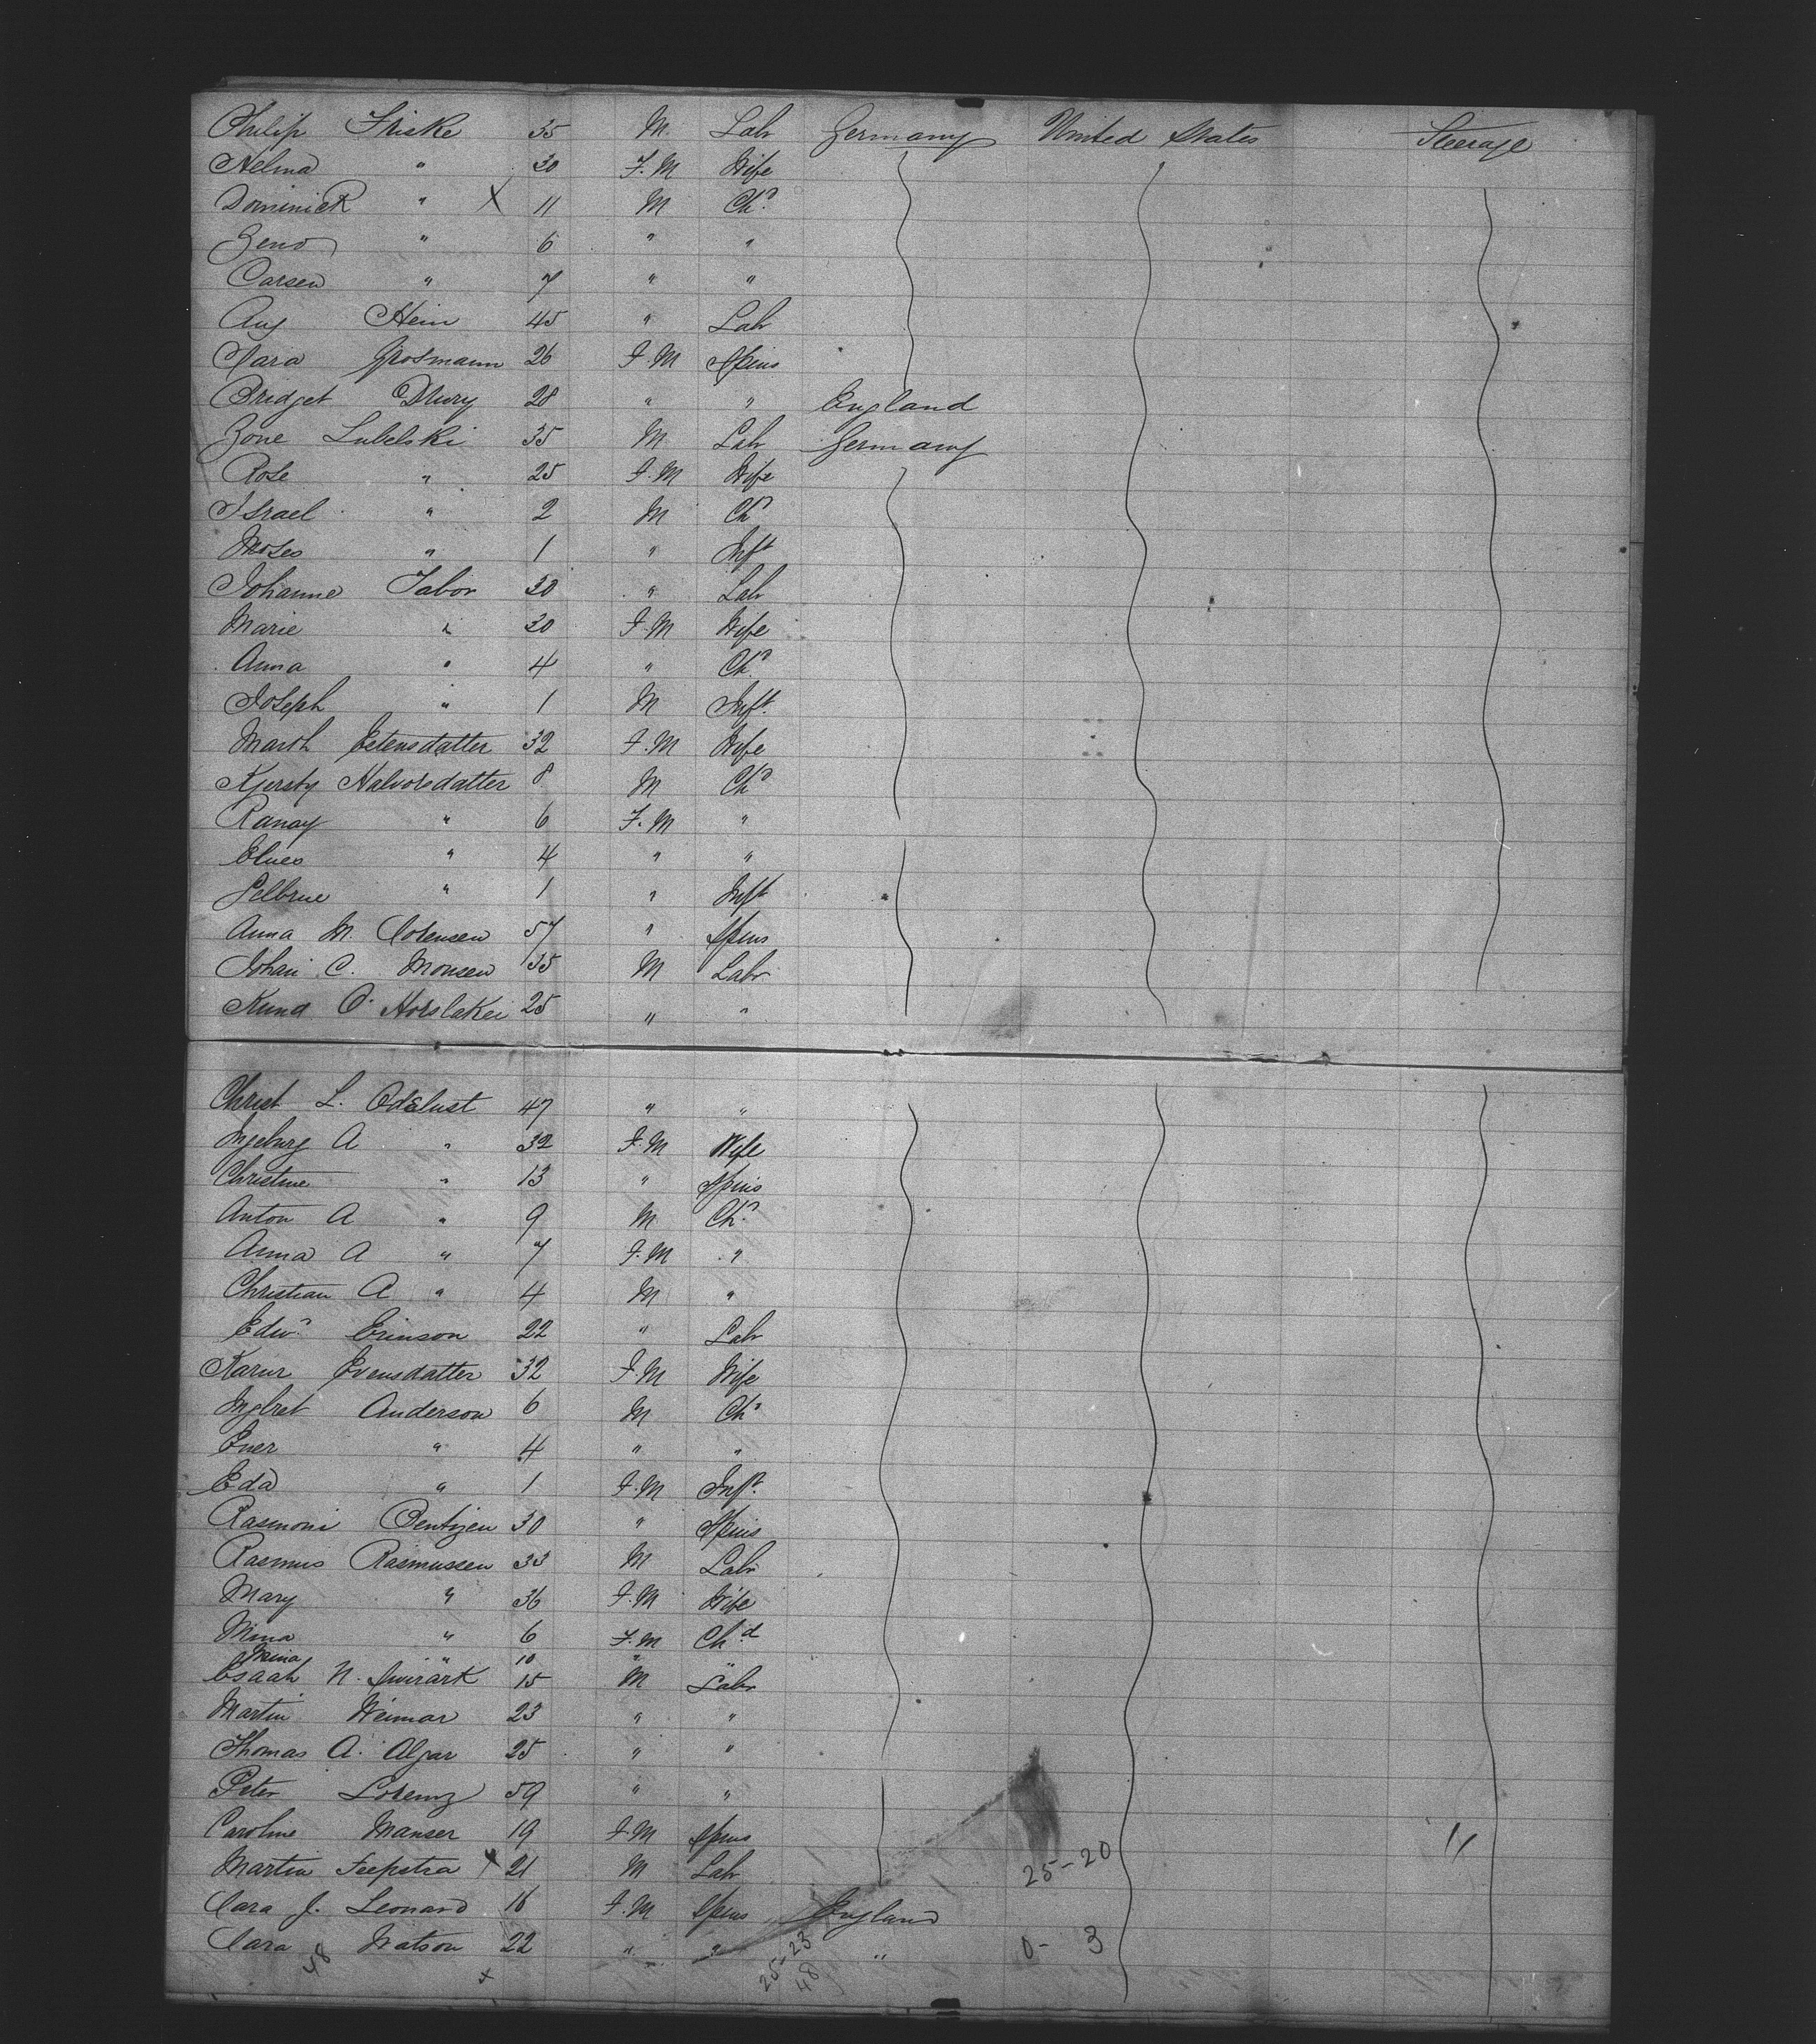 Philip Friske 35 M Labr Germany United States Steerage
Helma " 30 F.M Wife
Dominick " X 11 M Chd
Zeno " 6 " "
Carsen " 7 " "
Aug Hein 45 " Labr
Clara Grosmann 26 F.M Spins
Bridget Drury 28 " " England
Zone Lubelski 35 M Labr Germany
Rose " 25 F.M Wife
Israel " 2 M Chd
Moses " 1 " Inft
Johanne Tabor 30 " Labr
Marie " 30 F.M Wife
Anna " 4 " Chd
Joseph " 1 M Inft
Marth Petersdatter 32 F.M Wife
Kjersty Halvorsdatter 8 M Chd
Ranay " 6 F.M "
Elues " 4 " "
Pelbrue " 1 " Inft
Anna M. 57 " Spins
Johan C. Monsen 35 M Labr
Knud O. Horslakei 25 " "
Christ L. Odelust 47 " "
Ingeburg A " 32 F.M Wife
Christine " 13 " Spins
Anton A " 9 M Chd
Anna A " 7 F.M "
Christian A " 4 M "
Edwd Erinson 22 " Labr
Karur Evensdatter 32 F.M Wife
Ingbret Anderson 6 M Chd
Ener " 4 " "
Eda " 1 F.M Inft
Rasmoni Bentzen 30 " Spins
Rasmus Rasmussen 33 M Labr
Mary " 36 F.M Wife
Mina " 6 F.M Chd
Mina " 10 " "
Esaah N. 15 M Labr
Martin Weimar 23 " "
Thomas A. Algar 25 " "
Peter Lorenz 59 " "
Caroline Manser 19 F.M Spins "
Martin Feepstra X 21 M Labr 25-20
Clara J. Leonard 16 F.M Spins England
Clara Watson 22 " " " 0-3
48 x 25-23
48